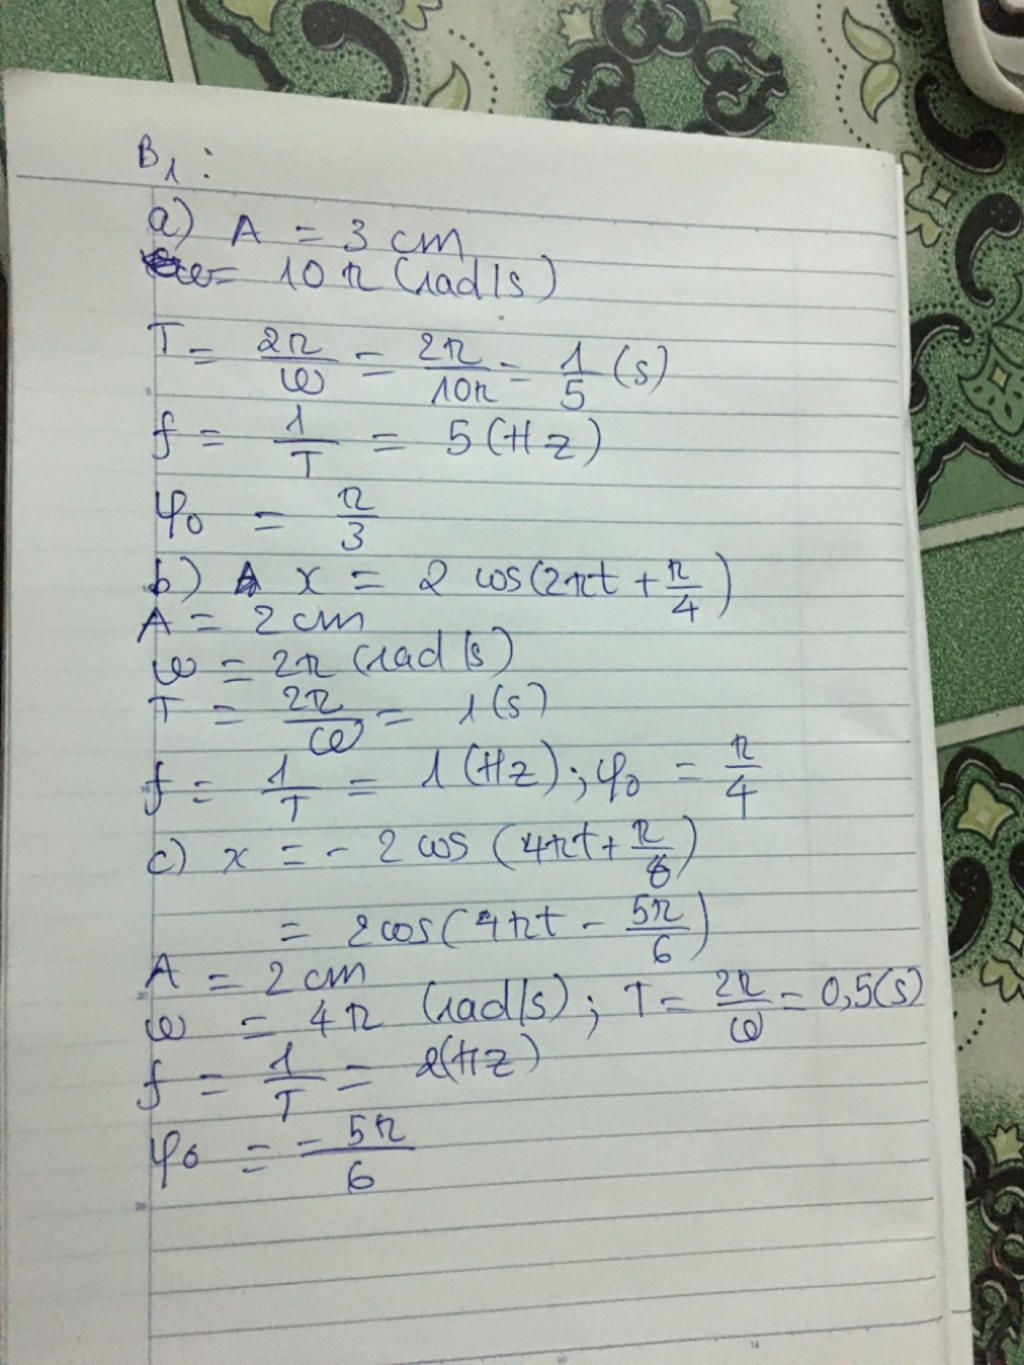 B1 :
a) A = 3 cm
ω = 10π (rad/s)
T = 2π/ω = 2π/10π = 1/5 (s)
f = 1/T = 5 (Hz)
φ0 = π/3
b) x = 2 cos(2πt + π/4)
A = 2 cm
ω = 2π (rad/s)
T = 2π/ω = 1 (s)
f = 1/T = 1 (Hz) ; φ0 = π/4
c) x = - 2 cos (4πt + π/6)
= 2cos(4πt - 5π/6)
A = 2 cm
ω = 4π (rad/s) ; T = 2π/ω = 0,5(s)
f = 1/T = 2(Hz)
φ0 = - 5π/6